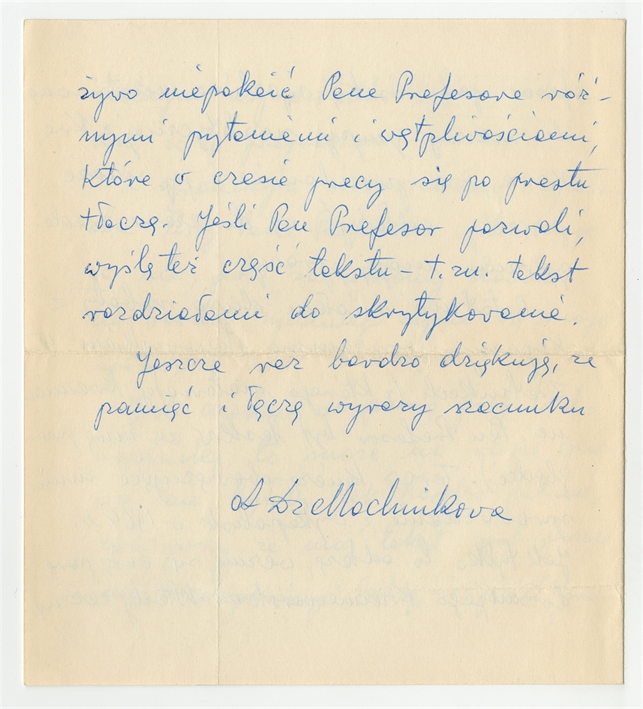 żywo niepokoić Pana Profesora róż-
nymi pytaniami i wątpliwościami,
które w czasie pracy się po prostu
tłoczą. Jeśli Pan Profesor pozwoli,
wyślę też część tekstu – t.zn. tekst
rozdziałami do skrytykowania.
Jeszcze raz bardzo dziękuję, za
pamięć i łączę wyrazy szacunku